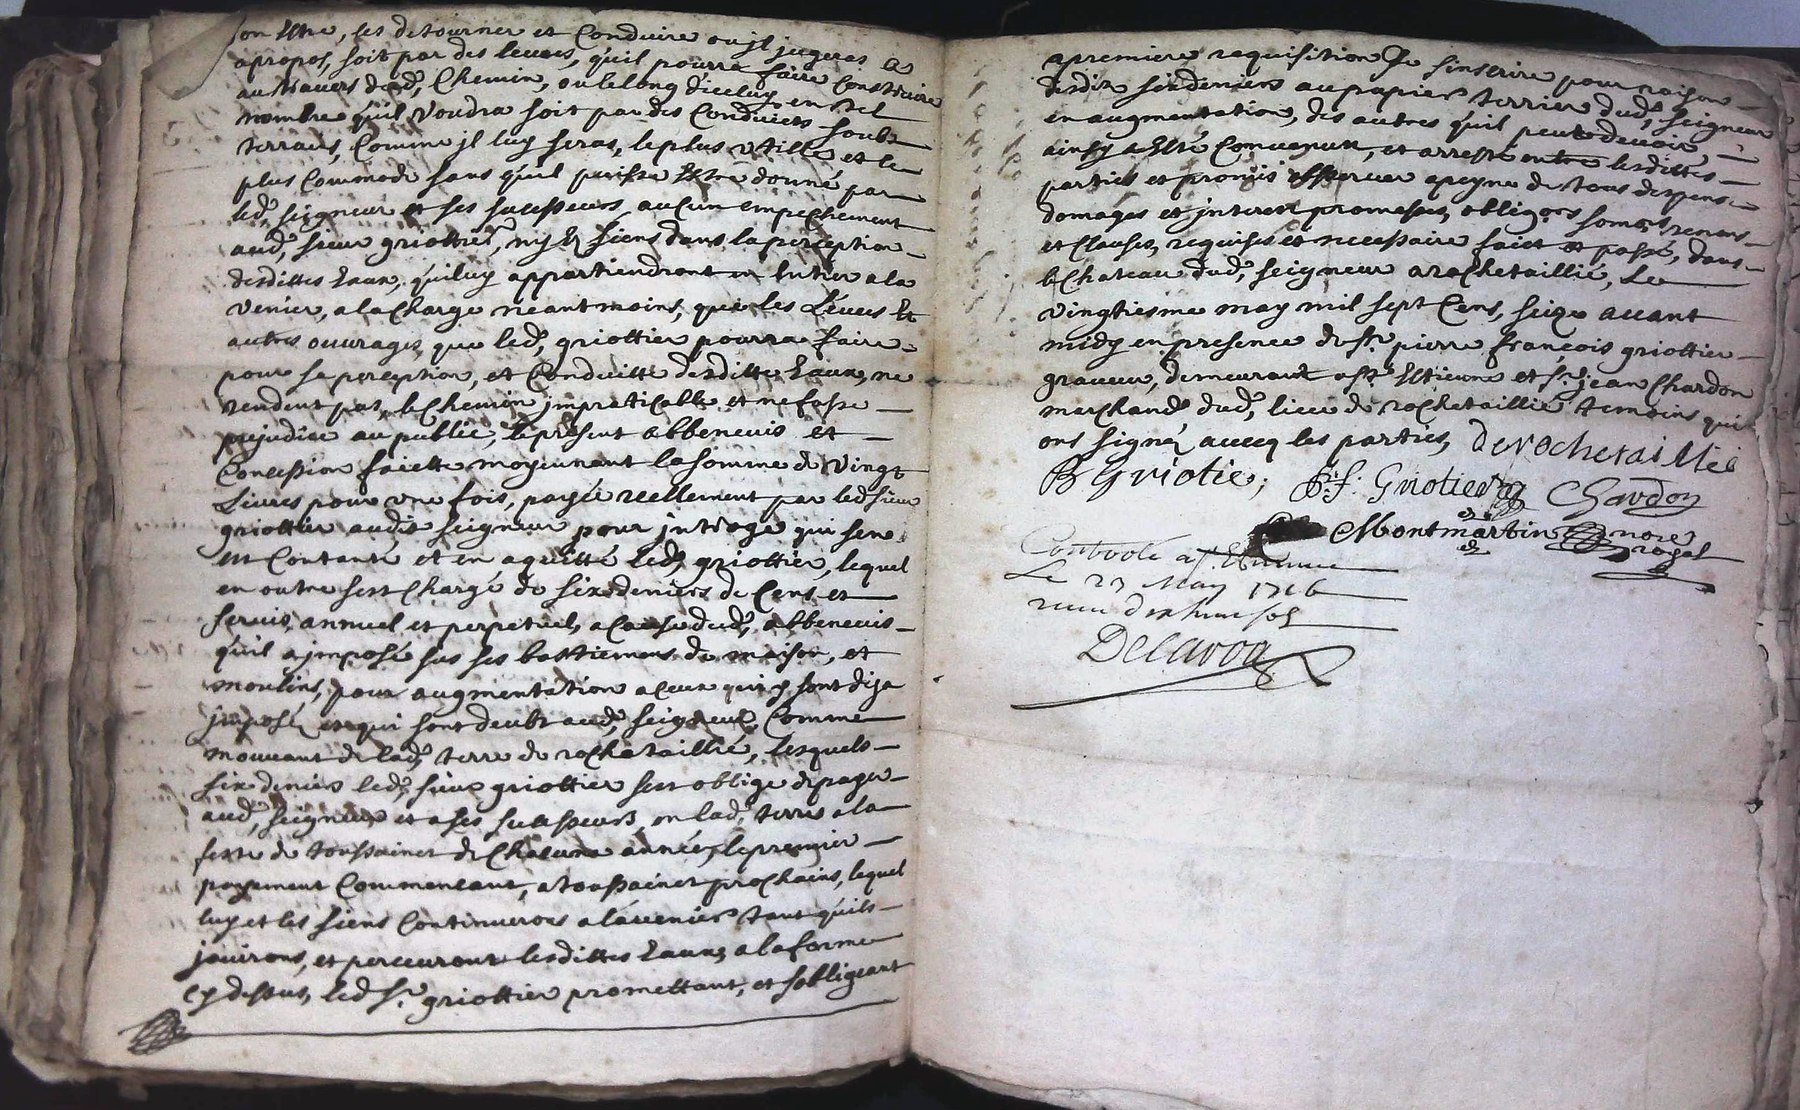 son estre, les destourner et Conduire ou jl jugeras a
apropos, soit par des levees, quil pourra faire Construire
au travers dud, Chemin, ou lelong diceluy en tel
nombre quil Voudra soit par des Conduiets soubs
terrains, Comme jl luy seras, le plus utille et le
plus Commode sans quil puisse Estre donné par
led, seigneur et ses successeurs aucun empechement
aud, sieur griottier, ny les siens dans la perception
desdittes Eaux, quiluy appartiendront en Entier a la
venier, a la Charge neantmoins, que les Levees Et
autres ouvrages, que led, griottier pourra faire
pour sa perception, et Conduitte desditte Eaux, ne
rendent pas, le Chemin jmpraticable et ne fasse
prejudice au public, le present abbenevis et
Concession faiette moyennant la somme de Vingt
Livres pour une fois, payée reellement par led sieur
griottier audit seigneur pour jntroge qui sen
est Contanté et en a quitté led, griottier, lequel
en outre sest Chargé de six deniers de Cens et
servis, annuel et perpetuel, a Cause dud, abbenevis
quil a jmposé sus ses bastiemens de maison, et
moulins, pour augmentation a Ceux qui y sont deja
jmposé et qui sont deubt aud, seigneur, Comme
mouvant de lad, terre de rochetaillié, lesquels
six deniers led, sieur griottier sest oblige de payer
aud, seigneur et a ses successeurs, en lad, terre a la
feste de toussainet de Chacune année, le premier
payement Commencant, a toussainet prochains, lequel
luy et les siens Continueront a lavenier tant quils
jouirons, et percevront lesdittes Eaux, a la forme
Cy dessus, led sr griottier promettant, et sobligeant
a premiere requisition de sinscrire pour raison
desdits six deniers au papier terrier dud, seigneur
en augmentation, des autres quil peut devoir
ainsy a Esté Convenu, et arresté entre lesdittes
parties et promis observer a peyne de tous despens
domages et jnterest promesses, obligons soms renons
et Clauses, requises et necessaire faict et passé, dans
le Chateau dud, seigneur a rochetaillié, Le
vingtiesme may mil sept Cens, seize avant
midy en presence de sr pierre françois griottier
graveur, demeurant a st Estienne et sr jean Chardon
marchand dud, lieu de rochetaillié temoins qui
ons signéz avecq les parties, de rochetaillée
B Griotie; P.f. Griotier Chardon
Montmartin nore
royal
Controlé a st. Etienne
Le 23 May 1716
reçu dix huit sols
Delavoa